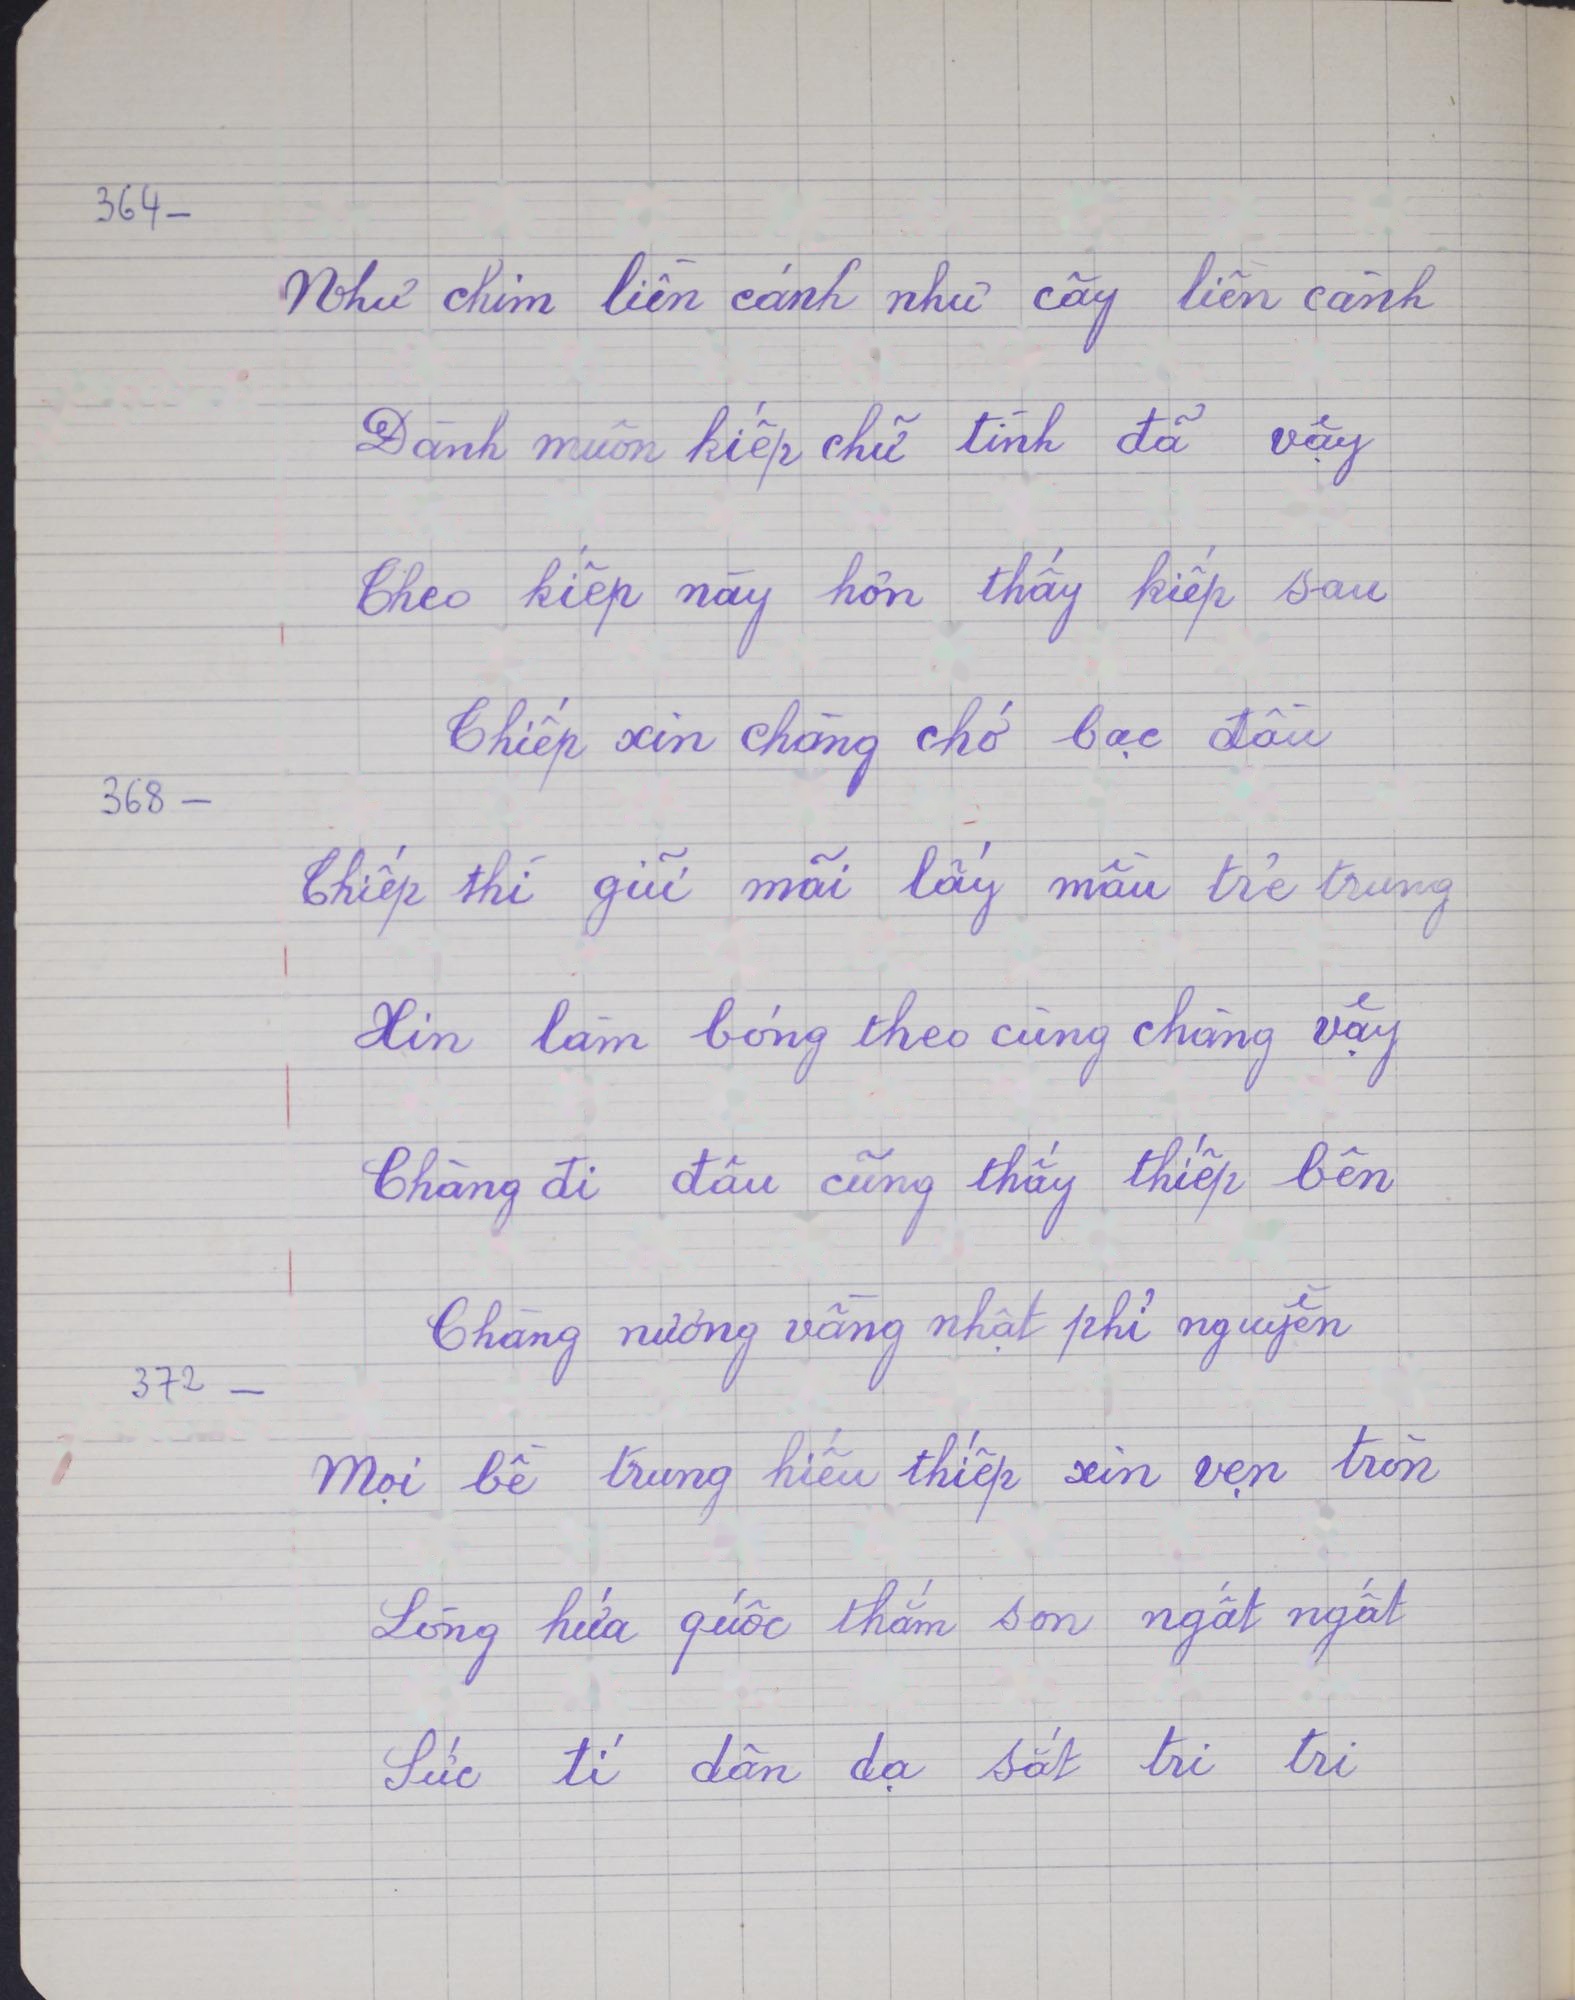 364 –
Như chim liền cánh như cây liền cành
Dành muôn kiếp chữ tình đã vậy
Theo kiếp này hơn thấy kiếp sau
Thiếp xin chàng chớ bạc đầu
368 –
Thiếp thì giữ mãi lấy mầu trẻ trung
Xin làm bóng theo cùng chàng vậy
Chàng đi đâu cũng thấy thiếp bên
Chàng nương vầng nhật phỉ nguyền
372 –
Mọi bề trung hiếu thiếp xin vẹn tròn
Lòng hứa quốc thắm son ngắt ngắt
Sức tí dân dạ sắt tri tri